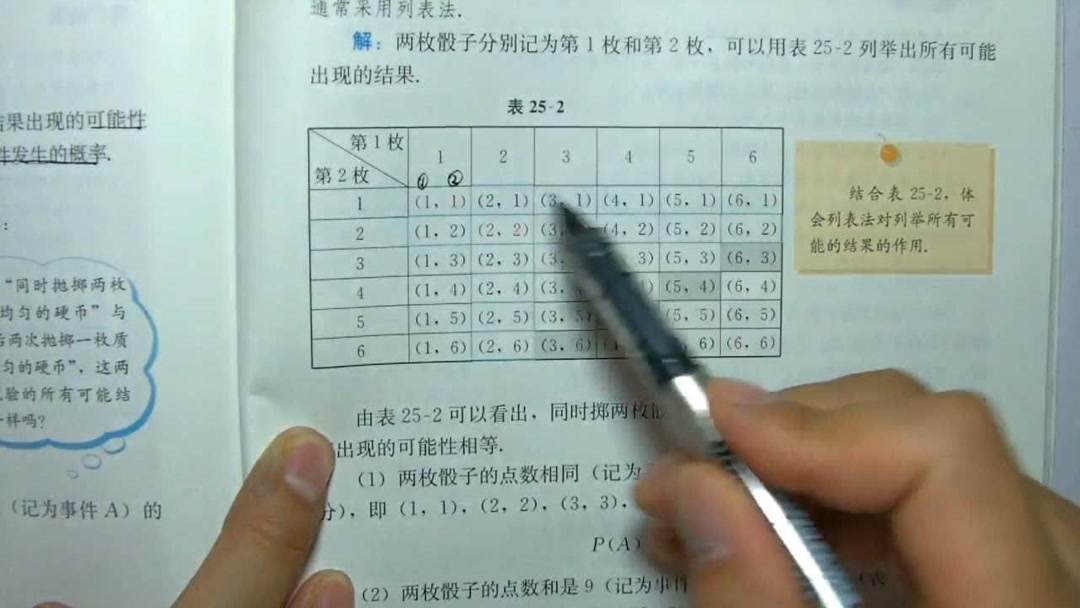 结果出现的可能性
件发生的概率.
：
“同时抛掷两枚
均匀的硬币”与
后两次抛掷一枚质
匀的硬币”，这两
验的所有可能结
一样吗?
（记为事件 A）的
通常采用列表法.
解：两枚骰子分别记为第 1 枚和第 2 枚，可以用表 25-2 列举出所有可能
出现的结果.
表 25-2
第 1 枚
第 2 枚
1 2 3 4 5 6
① ②
1 (1，1) (2，1) (3，1) (4，1) (5，1) (6，1)
2 (1，2) (2，2) (3， (4，2) (5，2) (6，2)
3 (1，3) (2，3) (3， 3) (5，3) (6，3)
4 (1，4) (2，4) (3，4 (5，4) (6，4)
5 (1，5) (2，5) (3，5) (5，5) (6，5)
6 (1，6) (2，6) (3，6) 6) (6，6)
结合表 25-2，体
会列表法对列举所有可
能的结果的作用.
由表 25-2 可以看出，同时掷两枚
出现的可能性相等.
（1）两枚骰子的点数相同（记为
分），即（1，1），（2，2），（3，3），
P(A)
（2）两枚骰子的点数和是 9（记为事件